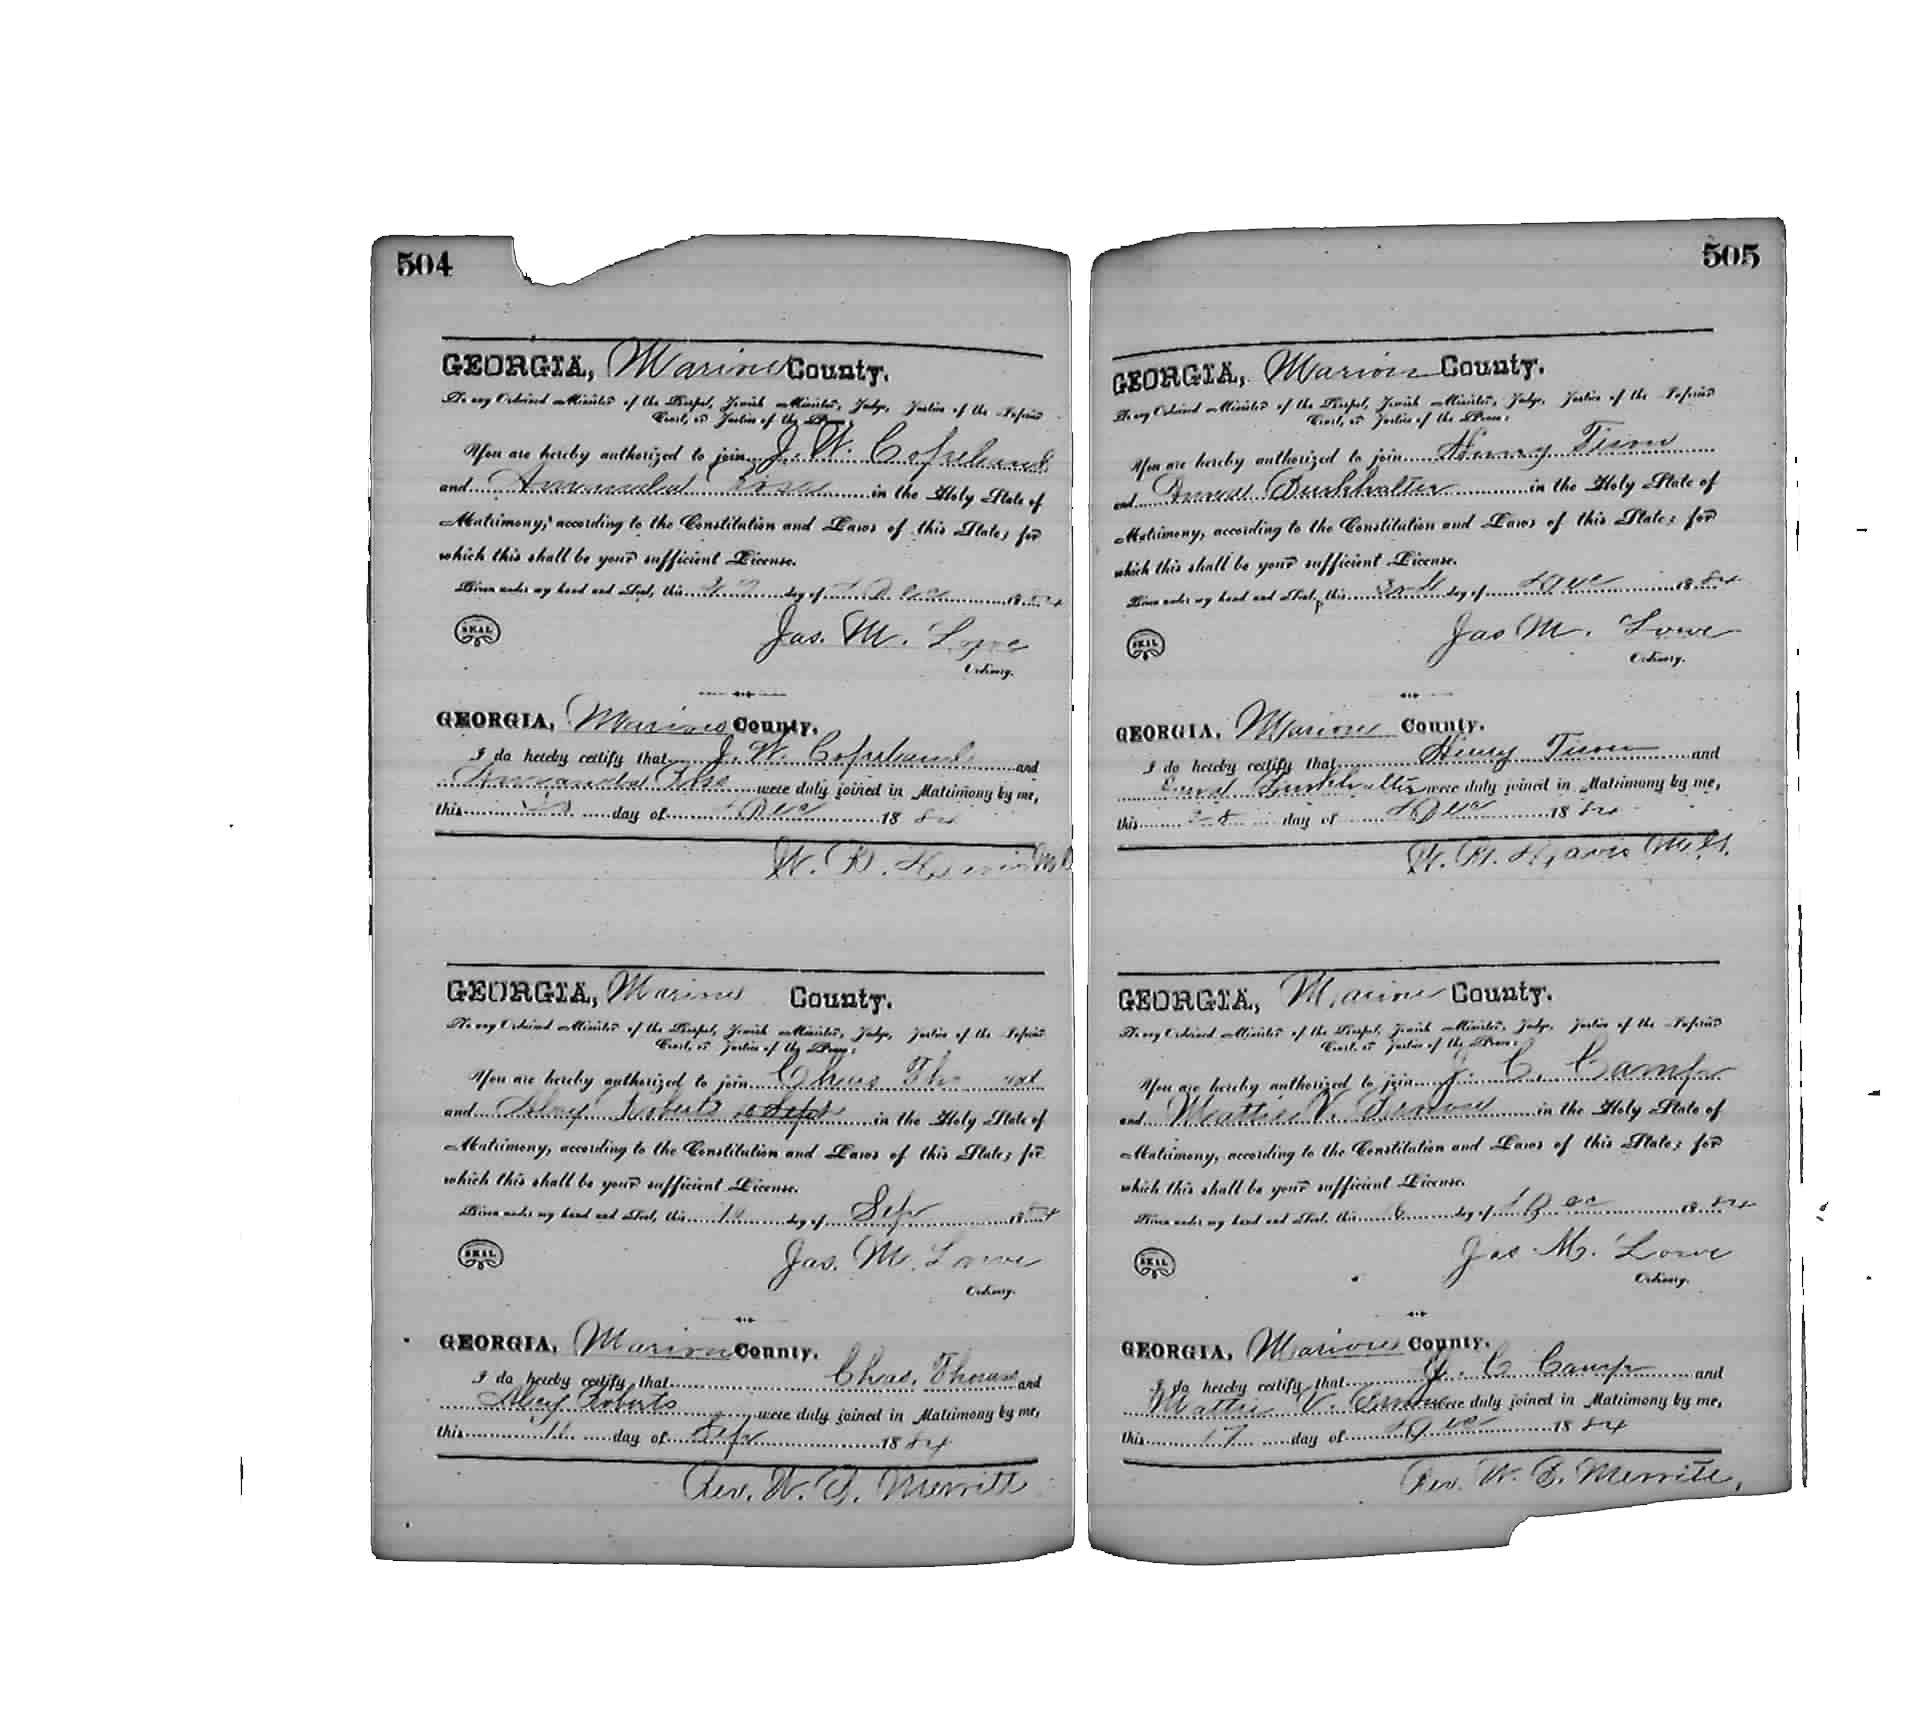 504
GEORGIA, Marion County.
To any Ordained Minister of the Gospel, Jewish Minister, Judge, Justice of the Inferior
Court, or Justice of the Peace:
You are hereby authorized to join J. W. Copeland
and Amanda in the Holy State of
Matrimony, according to the Constitution and Laws of this State; for
which this shall be your sufficient License.
Given under my hand and Seal, this day of Dec 1884
SEAL
Jas. M. Lowe
Ordinary.
GEORGIA, Marion County.
I do hereby certify that J. W. Copeland and
Amanda were duly joined in Matrimony by me,
this day of Dec 1884
W. B.
GEORGIA, Marion County.
To any Ordained Minister of the Gospel, Jewish Minister, Judge, Justice of the Inferior
Court, or Justice of the Peace:
You are hereby authorized to join Chas
and Roberts in the Holy State of
Matrimony, according to the Constitution and Laws of this State; for
which this shall be your sufficient License.
Given under my hand and Seal, this day of Sep 1884
SEAL
Jas. M. Lowe
Ordinary.
GEORGIA, Marion County.
I do hereby certify that Chas. Thomas and
Roberts were duly joined in Matrimony by me,
this 11 day of Sep 1884
Rev. W. D. Merritt
505
GEORGIA, Marion County.
To any Ordained Minister of the Gospel, Jewish Minister, Judge, Justice of the Inferior
Court, or Justice of the Peace:
You are hereby authorized to join Henry
and Burkhalter in the Holy State of
Matrimony, according to the Constitution and Laws of this State; for
which this shall be your sufficient License.
Given under my hand and Seal, this 3rd day of Dec 1884
SEAL
Jas M. Lowe
Ordinary.
GEORGIA, Marion County.
I do hereby certify that Henry and
Burkhalter were duly joined in Matrimony by me,
this day of Dec 1884
Davis
GEORGIA, Marion County.
To any Ordained Minister of the Gospel, Jewish Minister, Judge, Justice of the Inferior
Court, or Justice of the Peace:
You are hereby authorized to join J. C. Camp
and Mattie V. in the Holy State of
Matrimony, according to the Constitution and Laws of this State; for
which this shall be your sufficient License.
Given under my hand and Seal, this 6 day of Dec 1884
SEAL
Jas M. Lowe
Ordinary.
GEORGIA, Marion County.
I do hereby certify that J. C Camp and
Mattie V. were duly joined in Matrimony by me,
this 17 day of Dec 1884
Rev. W. D. Merritt,